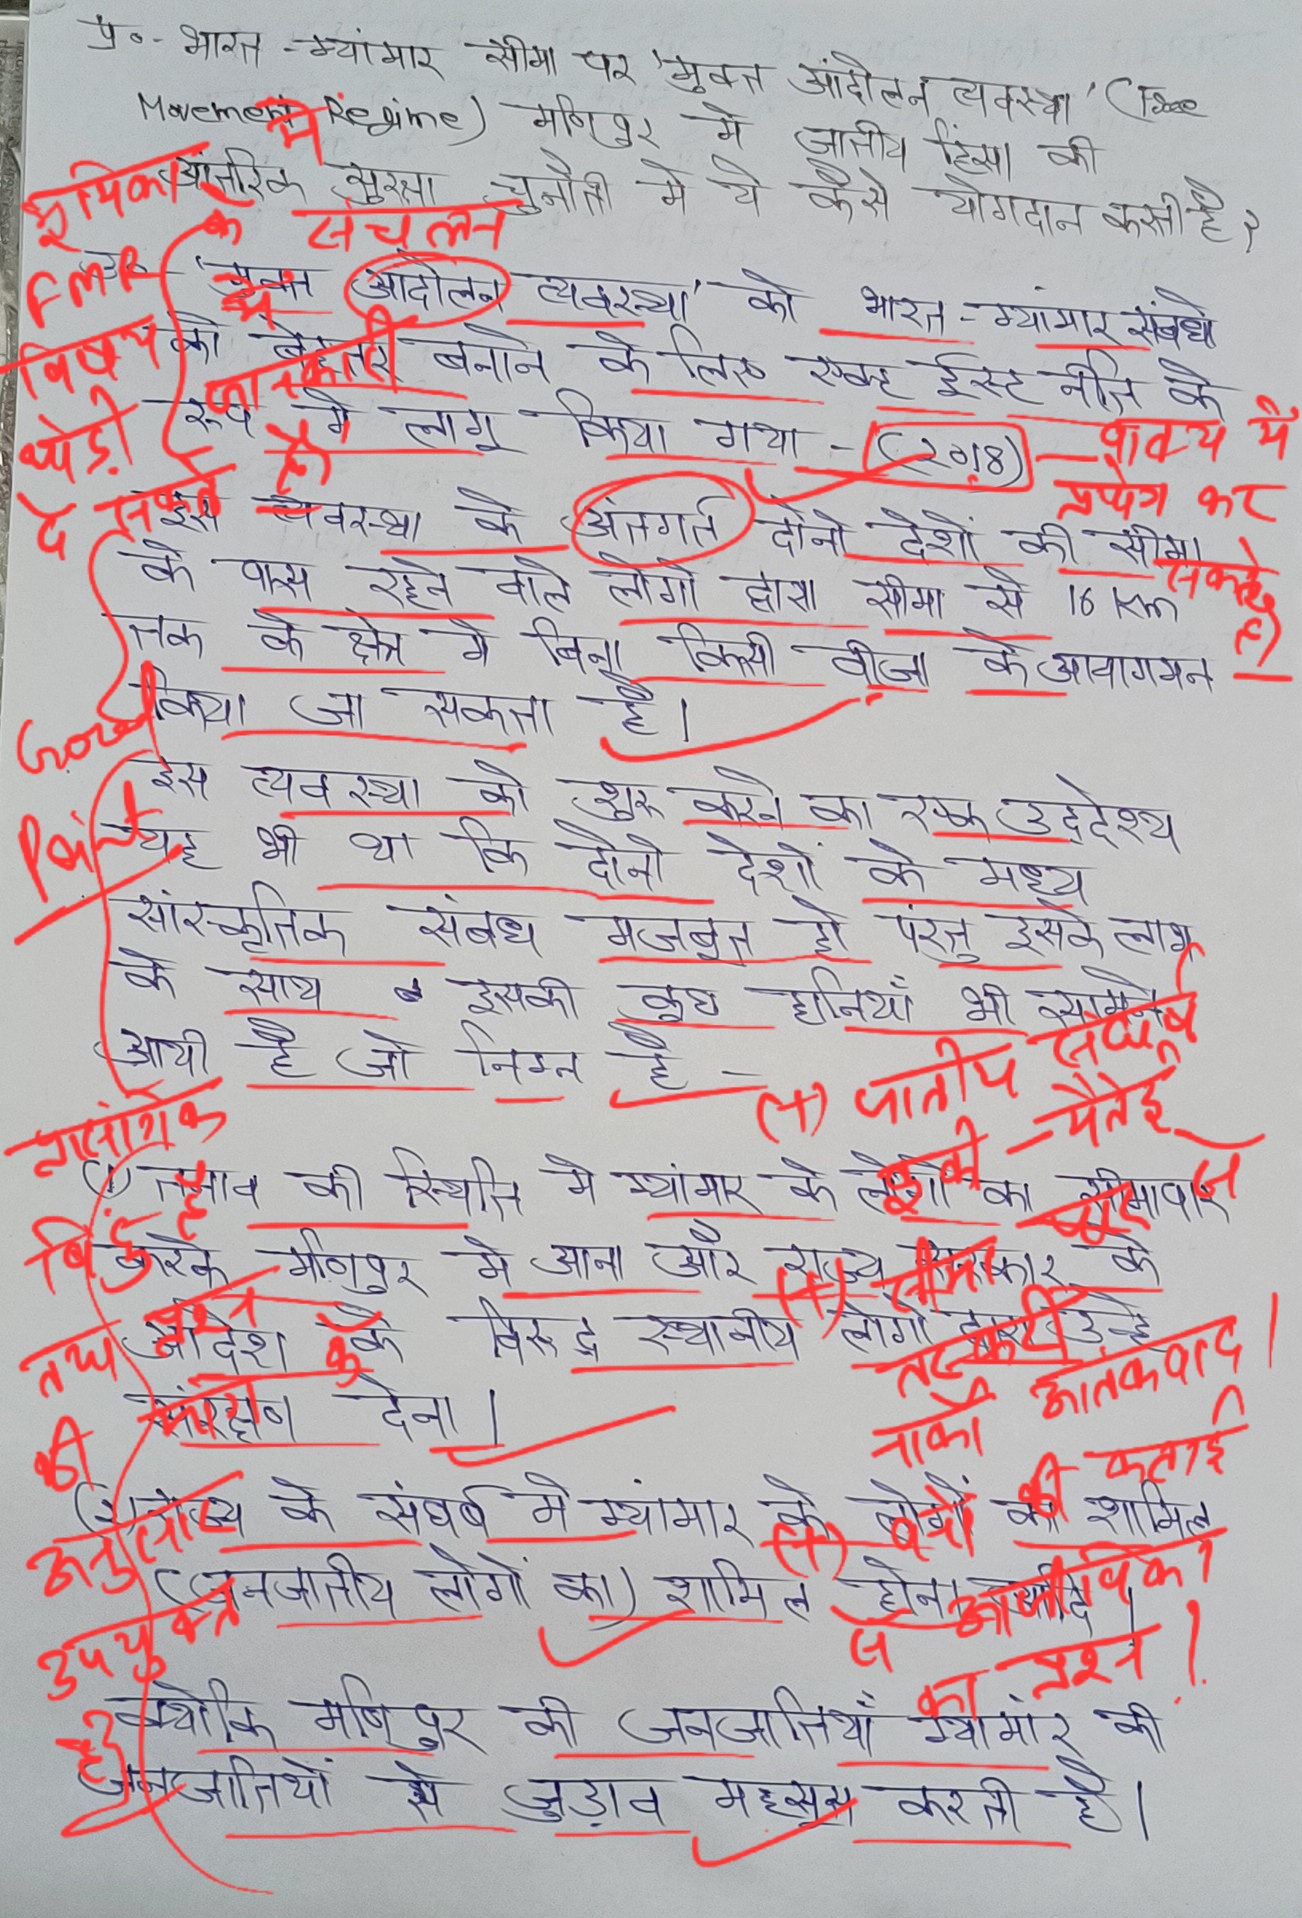 प्र०- भारत -म्यांमार सीमा पर 'मुक्त आंदोलन व्यवस्था' (Free
Movement Regime) मणिपुर मे जातीय हिंसा की
आंतरिक सुरक्षा चुनौती मे ये कैसे योगदान करती है?
भूमिका में
FMR के संचलन
विषय में
थोड़ी जानकारी
दे सकते हैं।
उ०- 'मुक्त आंदोलन व्यवस्था' को भारत -म्यांमार संबंधो
को बेहतर बनाने के लिए एक्ट ईस्ट नीति के
रूप मे लागू किया गया - (2018)
वाक्य में
प्रयोग कर
सकते हैं।
इस व्यवस्था के अंतगर्त दोनो देशों की सीमा
के पास रहने वाले लोगो द्वारा सीमा से 16 Km
तक के क्षेत्र मे बिना किसी वीजा के आवागमन
किया जा सकता है।
Good
Point
इस व्यवस्था को शुरू करने का एक उद्देश्य
यह भी था कि दोनो देशों के मध्य
सांस्कृतिक संबध मजबूत हो परंतु इसके लाभ
के साथ इसकी कुछ हानियाँ भी सामने
आयी है जो निम्न है -
(+) जातीय संघर्ष
कुकी - मैतेई
प्रासंगिक
बिंदु है
तथा प्रश्न के
की
(1) तनाव की स्थिति मे म्यांमार के लोगो का सीमापार
करके मणिपुर मे आना और राज्य सरकार के
आदेश के विरूद्ध स्थानीय लोगो द्वारा उन्हे
संरक्षण देना।
(+) सीमा
तस्करी
नार्को आतंकवाद।
(2) राज्य के संघर्ष मे म्यांमार के लोगों का शामिल
(जनजातीय लोगों का) शामिल होना आदि।
(+) वनों की कटाई
से आजीविका
का प्रश्न।
उपयुक्त
है।
क्योकि मणिपुर की जनजातियाँ म्यांमार की
जनजातियों से जुड़ाव महसूस करती है।